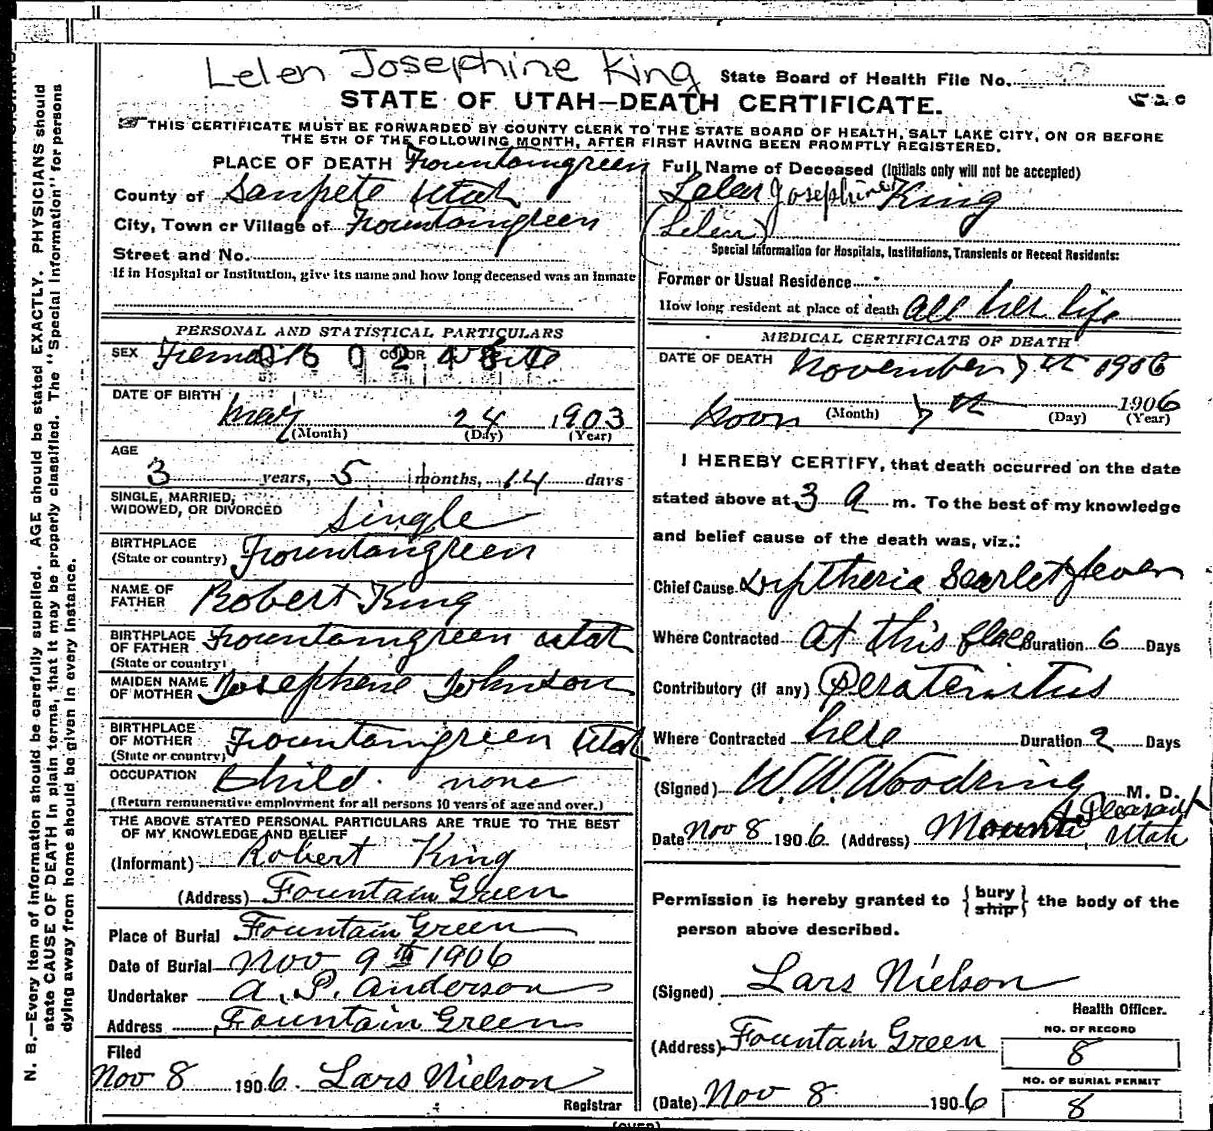 Lelen Josephine King
State Board of Health File No.
520
STATE OF UTAH—DEATH CERTIFICATE.
THIS CERTIFICATE MUST BE FORWARDED BY COUNTY CLERK TO THE STATE BOARD OF HEALTH, SALT LAKE CITY, ON OR BEFORE
THE 5TH OF THE FOLLOWING MONTH, AFTER FIRST HAVING BEEN PROMPTLY REGISTERED.
PLACE OF DEATH Fountaingreen
County of Sanpete Utah
City, Town or Village of Fountaingreen
Street and No.
If in Hospital or Institution, give its name and how long deceased was an Inmate
PERSONAL AND STATISTICAL PARTICULARS
SEX Female COLOR White
0602481
DATE OF BIRTH
May 24 1903
(Month) (Day) (Year)
AGE
3 years, 5 months, 14 days
SINGLE, MARRIED,
WIDOWED, OR DIVORCED Single
BIRTHPLACE
(State or country) Fountangreen
NAME OF
FATHER Robert King
BIRTHPLACE
OF FATHER Fountaingreen utah
(State or country)
MAIDEN NAME
OF MOTHER Josephene Johnson
BIRTHPLACE
OF MOTHER Fountaingreen Utah
(State or country)
OCCUPATION Child. none
(Return remunerative employment for all persons 10 years of age and over.)
THE ABOVE STATED PERSONAL PARTICULARS ARE TRUE TO THE BEST
OF MY KNOWLEDGE AND BELIEF
(Informant) Robert King
(Address) Fountain Green
Place of Burial Fountain Green
Date of Burial Nov 9th 1906
Undertaker A. P. Anderson
Address Fountain Green
Filed
Nov 8 1906. Lars Nielson
Registrar
Full Name of Deceased (Initials only will not be accepted)
Lelen Josephine King
(Lelen)
Special Information for Hospitals, Institutions, Transients or Recent Residents:
Former or Usual Residence
How long resident at place of death all her life
MEDICAL CERTIFICATE OF DEATH
DATE OF DEATH November 7th 1906
7th 1906
(Month) (Day) (Year)
I HEREBY CERTIFY, that death occurred on the date
stated above at 3 a m. To the best of my knowledge
and belief cause of the death was, viz.:
Chief Cause Diptheria Scarlet fever
Where Contracted At this place Duration 6 Days
Contributory (if any) Peratenitus
Where Contracted here Duration 2 Days
(Signed) W. W. Woodring M. D.
Date Nov 8 1906. (Address) Mount Pleasant, Utah
Permission is hereby granted to { bury ship } the body of the
person above described.
(Signed) Lars Nielson
Health Officer.
(Address) Fountain Green
NO. OF RECORD
8
NO. OF BURIAL PERMIT
8
(Date) Nov 8 1906
(OVER)
N. B.—Every item of information should be carefully supplied. AGE should be stated EXACTLY. PHYSICIANS should
state CAUSE OF DEATH in plain terms, that it may be properly classified. The "Special Information" for persons
dying away from home should be given in every instance.